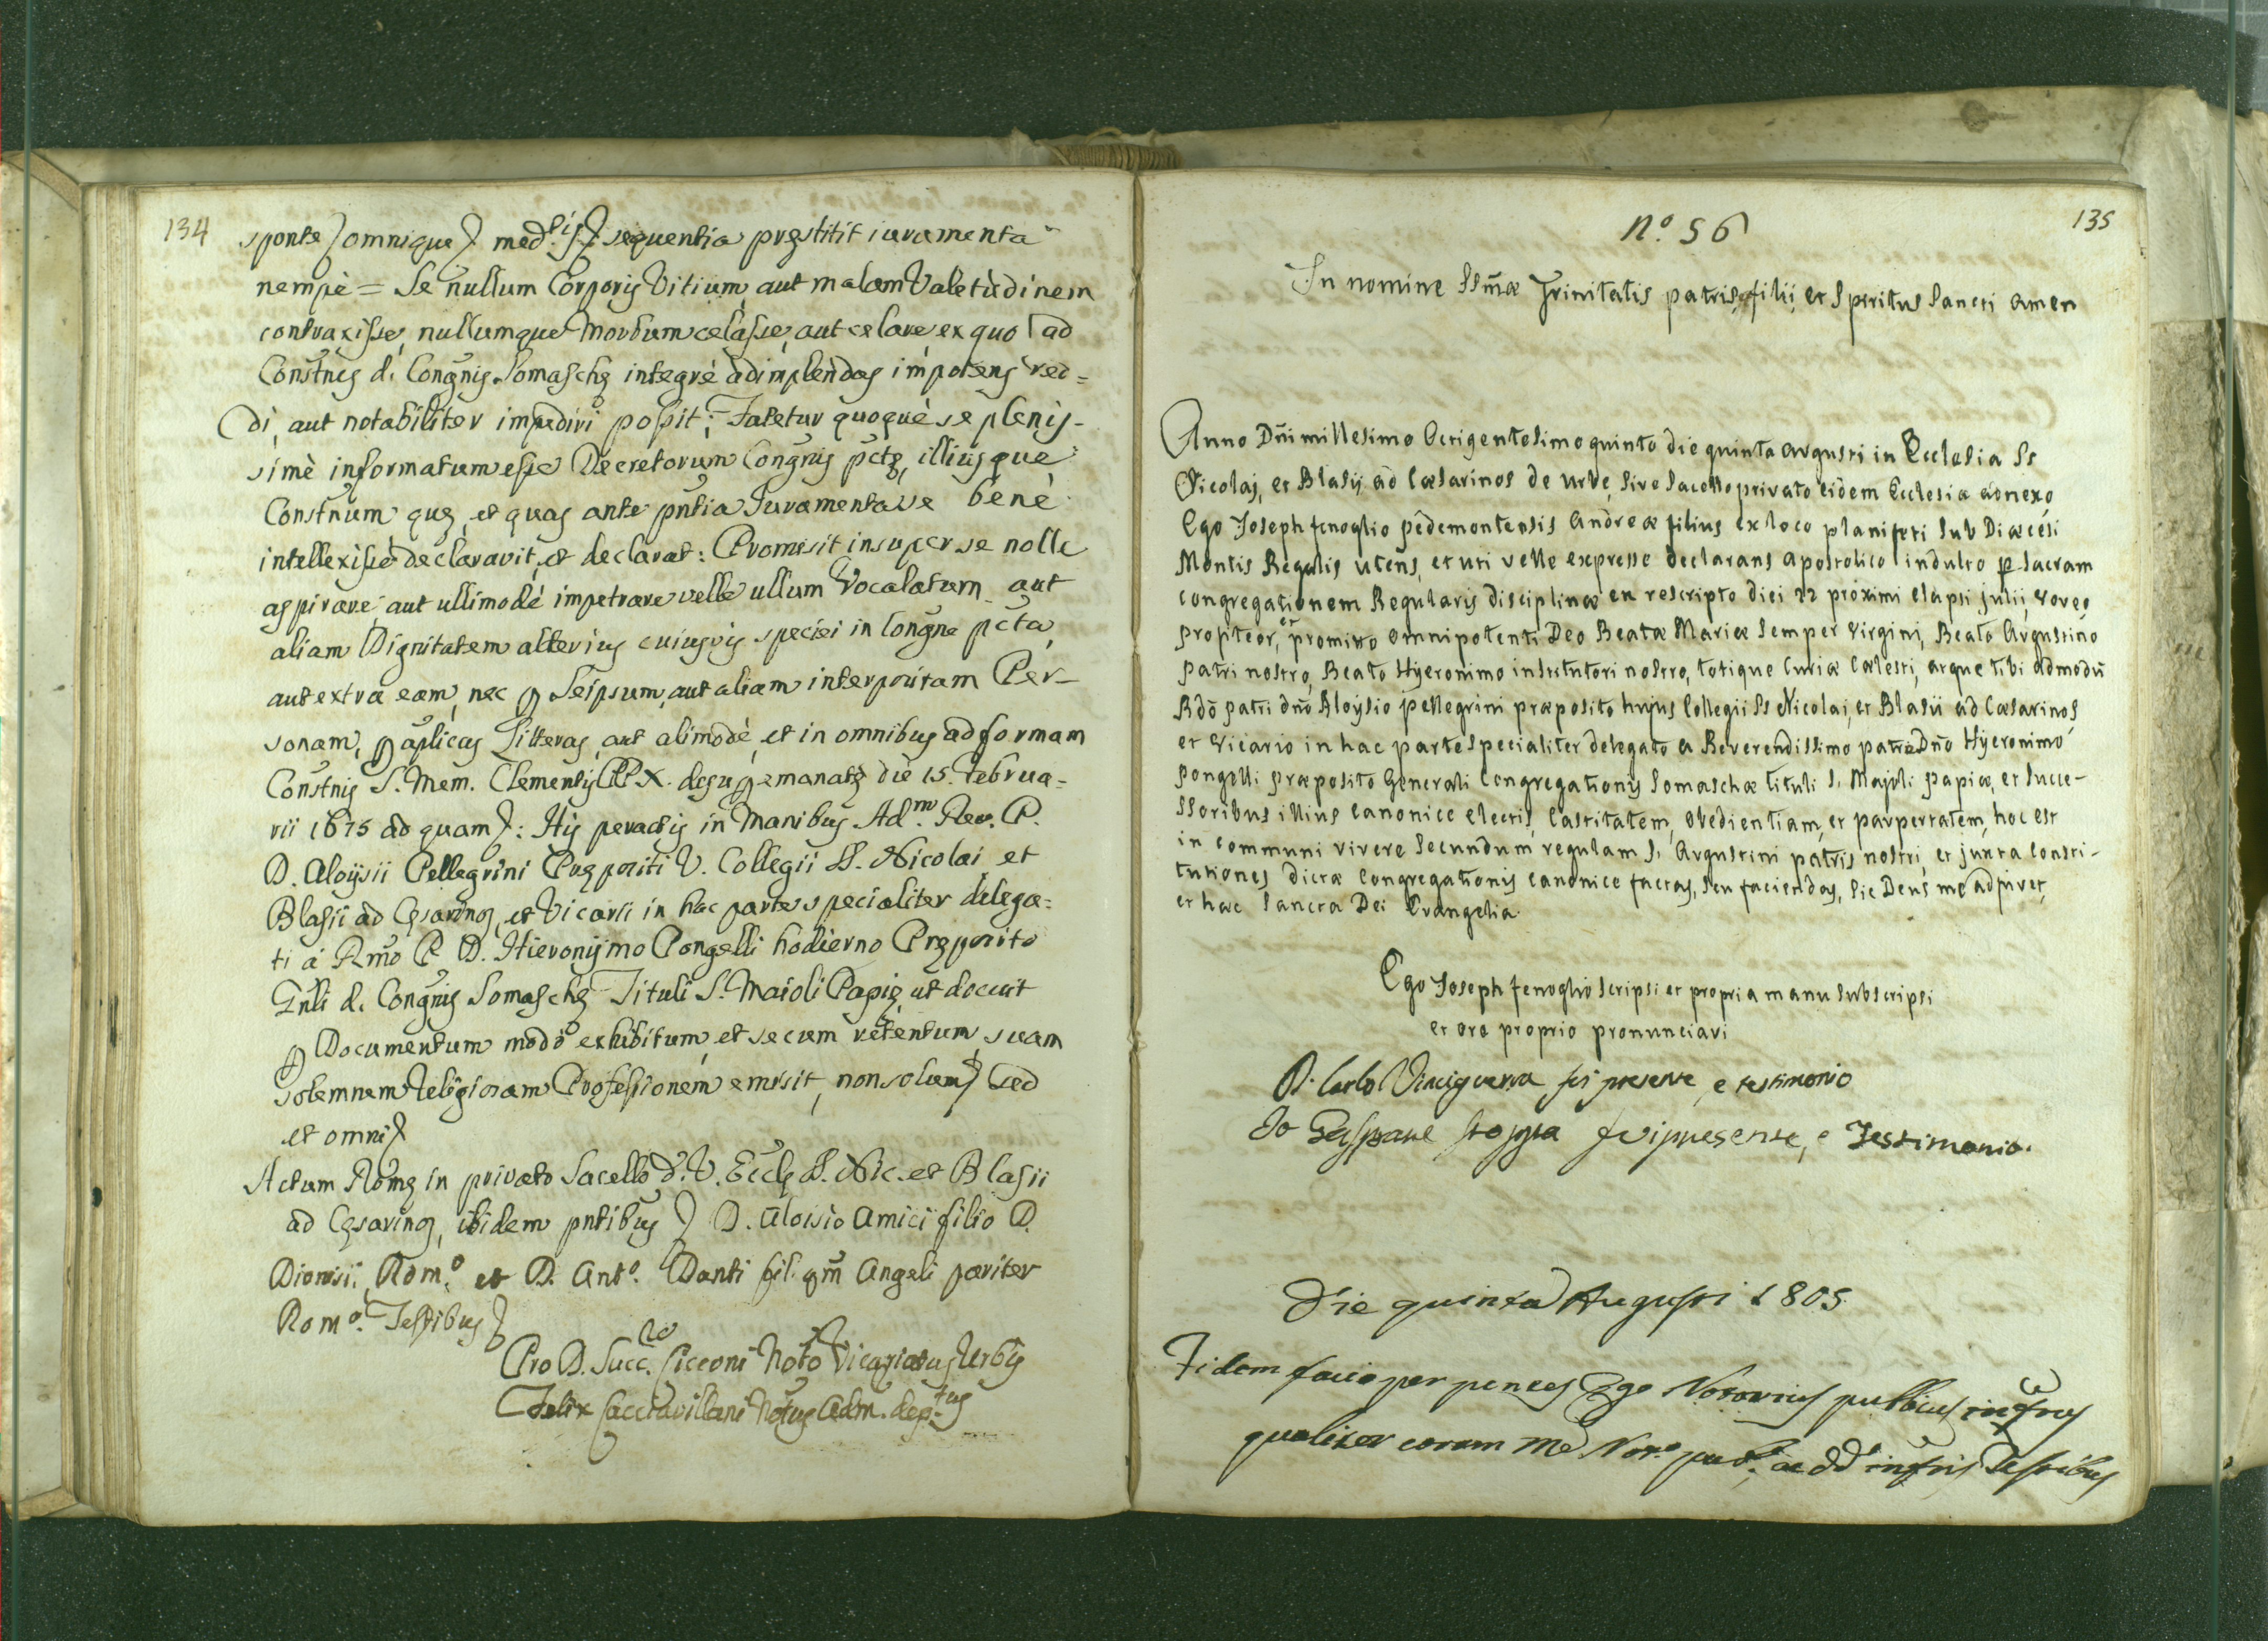 134
sponte omnique med.is sequentia pręstitit iuramenta
nempè = Se nullum Corporis Vitium, aut malam Valetùdinem
contraxisse, nullumque Morbum celasse, aut celare, ex quo ad
Constñes d. Congñis Somaschę integrè adimplendas impotens red=
di, aut notabiliter impediri possit; Fatetur quoquè se plenis-
simè informatum esse Decretorum Congñis pctę, illiusque
Constñum quę, et quas ante pñtia Iuramenta se benè
intellexisse declaravit, et declarat: Promisit insuper se nolle
aspirare, aut ullimodè impetrare velle ullum Vocalatum aut
aliam Dignitatem alterius cuiusvis speciei in Congñe pcta,
aut extra eam, nec ꝑ Seipsum, aut aliam interpositam Per-
sonam, ꝑ aplicas Litteras, aut alimodè, et in omnibus ad formam
Constñis S. Mem. Clementis PP. X. desup emanatę die 15. Februa=
rii 1675 ad quam: His peractis in Manibus Ad.m Rev. P.
D. Aloysii Pellegrini Prępositi V. Collegii SS. Nicolai et
Blasii ad Cęsarinos, et Vicarii in hac parte specialiter delega=
ti à Rmo P. D. Hieronymo Pongelli hodierno Pręposito
Gnli d. Congñis Somaschę Tituli S. Maioli Papię, ut docuit
ꝑ Documentum modò exhibitum, et secum retentum, suam
solemnem Religiosam Professionem emisit, non solum sed
et omni
Actum Romę in privato Sacello d. V. Eccłę SS. Nic. et Blasii
ad Cęsarinos, ibidem pñtibus D. Aloisio Amici filio D.
Dionisii Rom.o et D. Ant.o Danti fil. qm̃ Angeli pariter
Rom.o Testibus
Pro D. Succ. Ciccons Noto Vicariatus Urbis
Felix Notus Adm. dep.tus
135
N.o 56
In nomine SSmæ Trinitatis patris, filii, et Spiritus Sancti amen
Anno Dñi millesimo Octigentesimo quinto die quinta augusti in Ecclesia Ss
Nicolaj, et Blasij ad Cæsarinos de urbe, sive Sacello privato eidem Ecclesiæ adnexo
Ego Joseph fenoglio pedemontensis Andreæ filius ex loco planfeti sub Diœcesi
Montis Regalis utens, et uti velle expresse declarans apostolico indulto ꝑ Sacram
congregationem Regularis disciplinæ en rescripto diei 22 proximi elapsi julii, voveo
profiteor, et promitto omnipotenti Deo Beatæ Mariæ Semper Virgini, Beato Augustino
patri nostro, Beato Hyeronimo institutori nostro, totique Curiæ Cælesti, atque tibi admodũ
Rdõ patri dnõ Aloysio pellegrini præposito hujus Collegii Ss Nicolai, et Blasii ad Cæsarinos
et Vicario in hac parte specialiter delegato a Reverendissimo patre Dño Hyeronimo
Pongelli præposito Generali Congregationis Somaschæ tituli S. Majoli papiæ, et Succe-
ssoribus illius canonice electis, Castitatem, Obedientiam, et paupertatem, hoc est
in communi vivere Secundum regulam S. Augustini patris nostri, et juxta Consti-
tutiones dictæ Congregationis canonice factas, seu faciendas, sic Deus me adjuvet,
et hæc Sancta Dei Evangelia.
Ego Joseph fenoglio scripsi et propria manu subscripsi
et ore proprio pronunciavi
D. Carlo Vinciguerra fui presente, e testimonio
Io Gaspare stoppa fui presente, e Testimonio.
Die quinta Augusti 1805
Fidem facio per pñtes Ego Notarius publicus infrus
qualiter coram me Not.o pub.o, ac dd infris Testibus